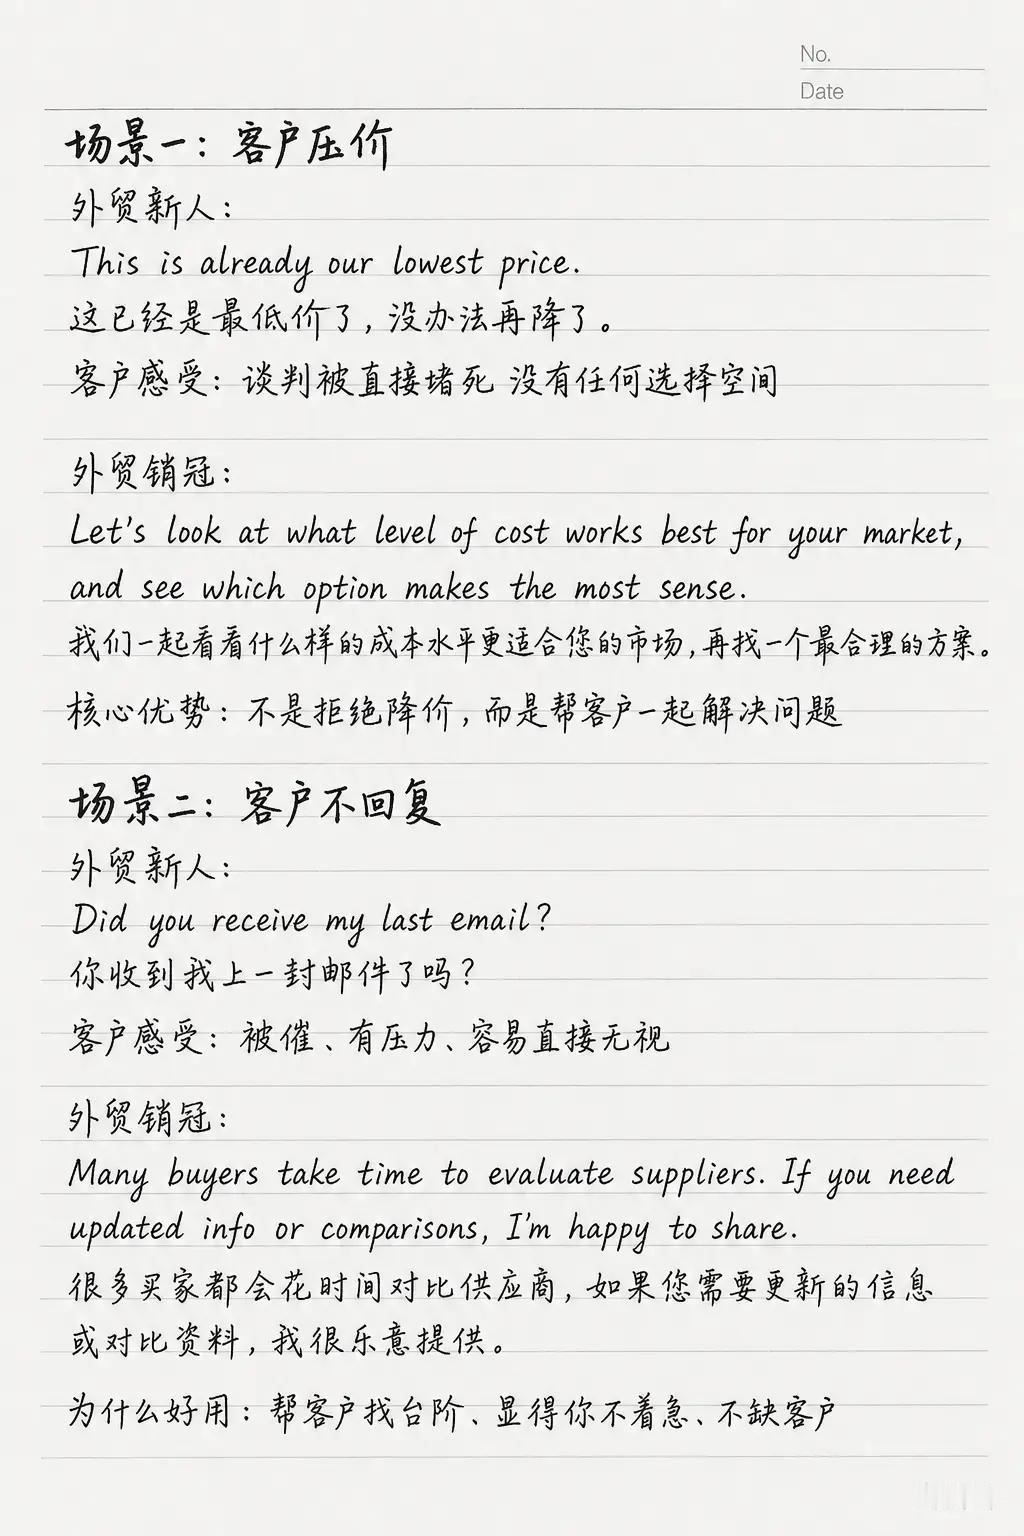 No.
Date
场景一：客户压价
外贸新人：
This is already our lowest price.
这已经是最低价了，没办法再降了。
客户感受：谈判被直接堵死 没有任何选择空间
外贸销冠：
Let's look at what level of cost works best for your market,
and see which option makes the most sense.
我们一起看看什么样的成本水平更适合您的市场，再找一个最合理的方案。
核心优势：不是拒绝降价，而是帮客户一起解决问题
场景二：客户不回复
外贸新人：
Did you receive my last email?
你收到我上一封邮件了吗？
客户感受：被催、有压力、容易直接无视
外贸销冠：
Many buyers take time to evaluate suppliers. If you need
updated info or comparisons, I'm happy to share.
很多买家都会花时间对比供应商，如果您需要更新的信息
或对比资料，我很乐意提供。
为什么好用：帮客户找台阶、显得你不着急、不缺客户